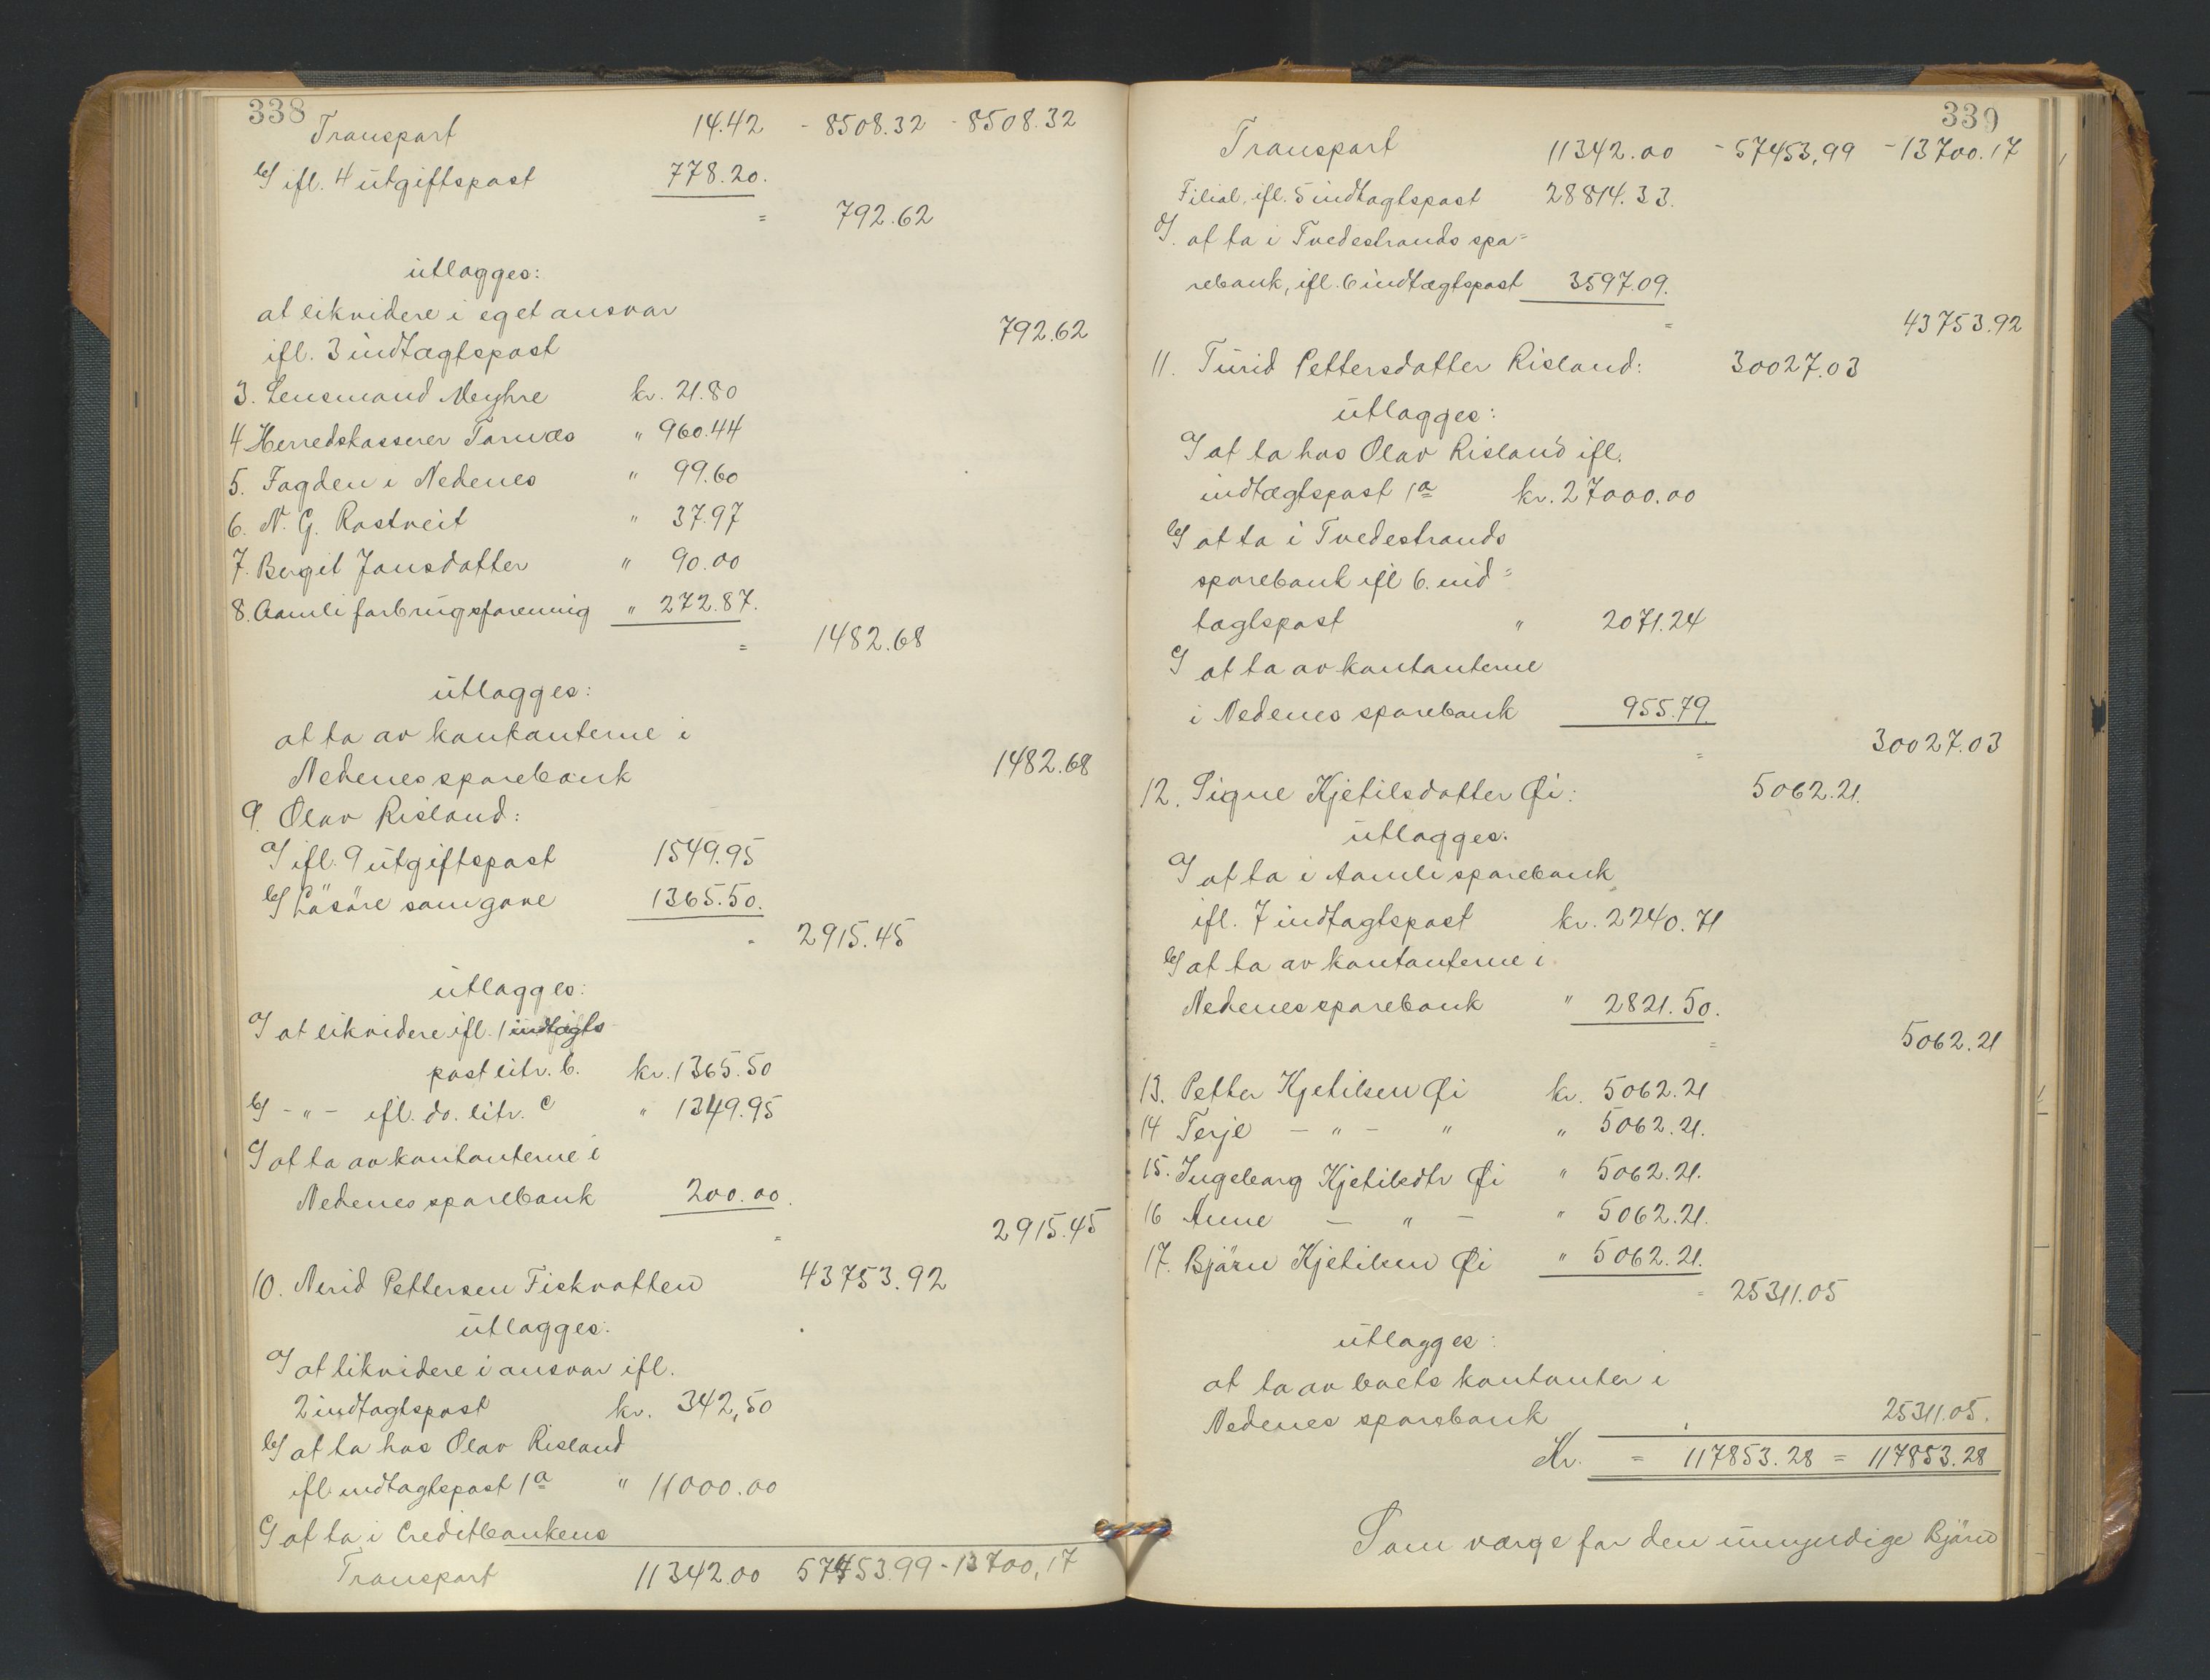 338
Transport 14.42 - 8508.32 - 8508.32
b/ ifl. 4 utgiftspost 778.20.
= 792.62
utlægges:
at likvidere i eget ansvar
ifl. 3 indtægtspost 792.62
3. Lensmand Neyhre kr. 21.80
4 Herredskasserer Tarvæs " 960.44
5. Fogden i Nedenes " 99.60
6. N. G. Rostveit " 37.97
7. Bergit Jonsdatter " 90.00
8. Aamli forbrugsforening " 272.87.
= 1482.68
utlægges:
at ta av kontanterne i
Nedenes sparebank 1482.68
9. Olav Risland:
a/ ifl. 9 utgiftspost 1549.95
b/ Løsøre som gave 1365.50.
= 2915.45
utlægges:
a/ at likvidere ifl. 1 indtægts
post litr. b. kr. 1365.50
b/ - " - ifl. do. litr. c " 1349.95
c/ at ta av kontanterne i
Nedenes sparebank 200.00.
= 2915.45
10. Nerid Pettersen Fiskvatten 43753.92
utlægges:
a/ at likvidere i ansvar ifl.
2 indtægtspost kr. 342,50
b/ at ta hos Olav Risland
ifl. indtægtspost 1a " 11000.00
c/ at ta i Creditbankens
Transport 11342.00 57453.99 - 13700,17
339
Transport 11342.00 - 57453,99 - 13700.17
Filial, ifl. 5 indtægtspost 28814.33.
d/. at ta i Tvedestrands spa=
rebank, ifl. 6 indtægtspost 3597.09.
= 43753.92
11. Turid Pettersdatter Risland: 30027.03
utlægges:
a/ at ta hos Olav Risland ifl.
indtægtspost 1a kr. 27000.00
b/ at ta i Tvedestrands
sparebank ifl 6. ind=
tægtspost " 2071.24
c/ at ta av kontanterne
i Nedenes sparebank 955.79
= 30027.03
12. Signe Kjetilsdatter Øi: 5062.21.
utlægges:
a/ at ta i Aamli sparebank
ifl. 7 indtægtspost kr. 2240.71
b/ at ta av kontanterne i
Nedenes sparebank " 2821.50.
= 5062.21
13. Petter Kjetilsen Øi kr. 5062.21
14 Terje - " - " " 5062.21.
15. Ingeborg Kjetilsdtr Øi " 5062.21.
16 Anne - " - " 5062.21.
17. Bjørn Kjetilsen Øi " 5062.21.
= 25311.05
utlægges:
at ta av boets kontanter i
Nedenes sparebank 25311.05.
Kr. = 117853.28 = 117853.28
Som værge for den umyndige Bjørn